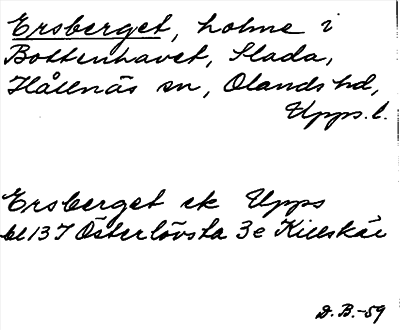 Ersberget, holme i
Bottenhavet, Slada,
Hållnäs sn, Olands hd,
Upps. l.
Ersberget ek Upps
bl 137 Österlövsta 3e Killskär
D. B. -59